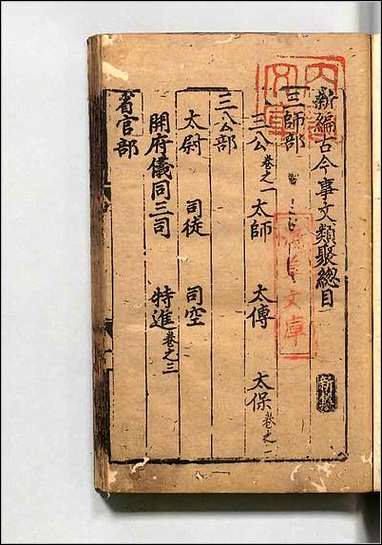 新編古今事文類聚總目
三師部
三公卷之一 太師 太傅 太保卷之一
三公部
太尉 司徒 司空
開府儀同三司 特進卷之三
省官部
文庫